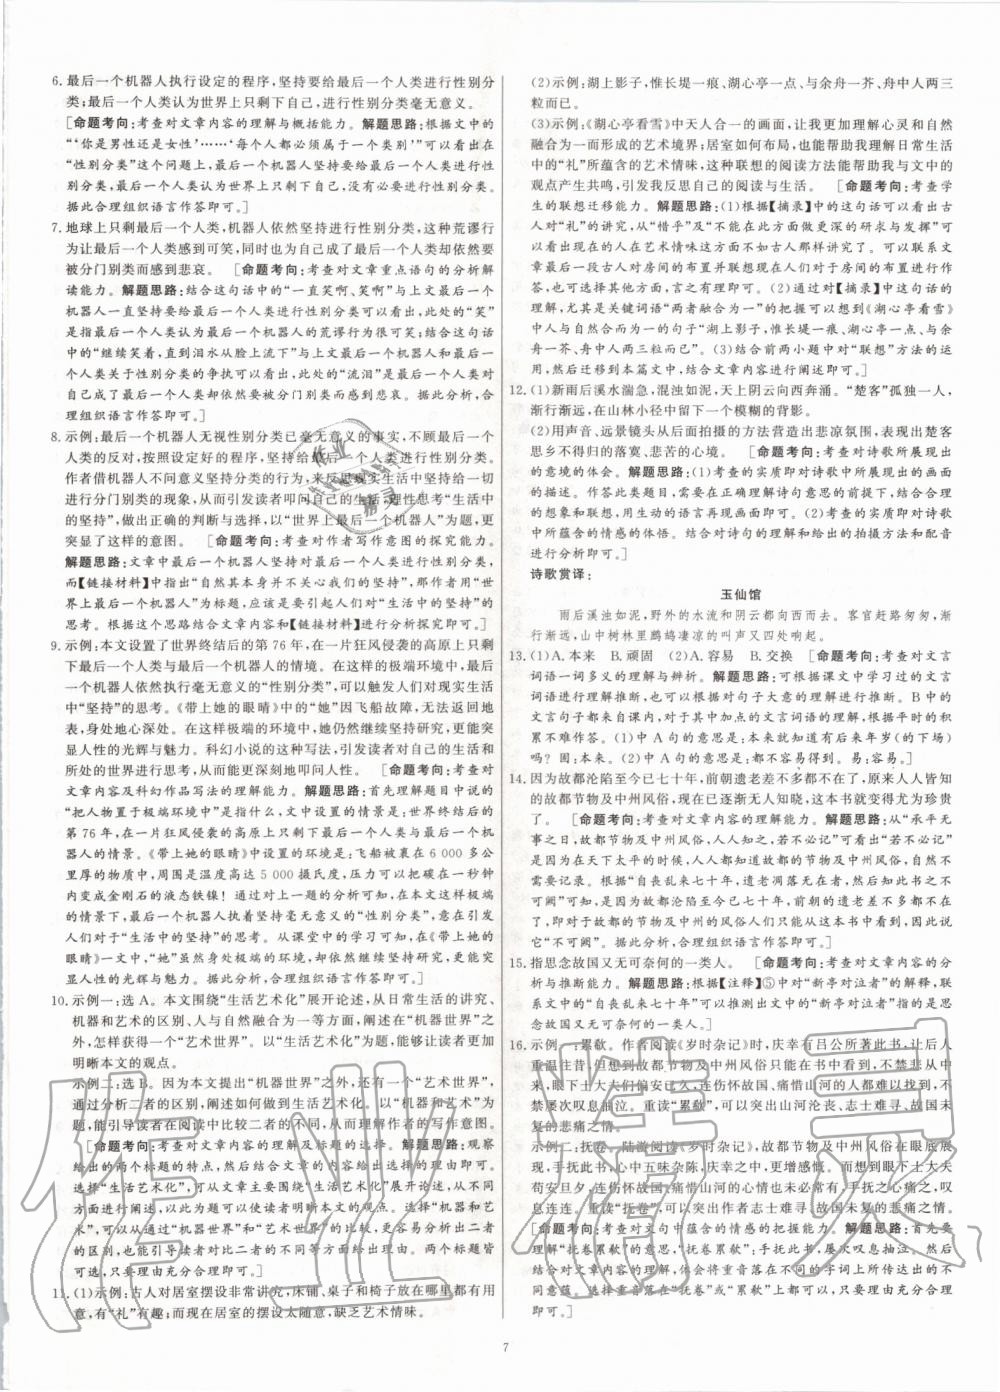 6. 最后一个机器人执行设定的程序,坚持要给最后一个人类进行性别分
类;最后一个人类认为世界上只剩下自己,进行性别分类毫无意义。
[命题考向:考查对文章内容的理解与概括能力。解题思路:根据文中的
“‘你是男性还是女性’……‘每个人都必须属于一个类别’”可以看出在
“性别分类”这个问题上,最后一个机器人坚持要给最后一个人类进行
性别分类,最后一个人类认为世界上只剩自己,没有必要进行性别分类。
据此合理组织语言作答即可。]
7. 地球上只剩最后一个人类,机器人依然坚持进行性别分类,这种荒谬行
为让最后一个人类感到可笑,同时也为自己成了最后一个人类却依然要
被分门别类而感到悲哀。 [命题考向:考查对文章重点语句的分析解
读能力。解题思路:结合这句话中的“一直笑啊、笑啊”与上文最后一个
机器人一直坚持要给最后一个人类进行性别分类可以看出,此处的“笑”
是指最后一个人类对最后一个机器人的荒谬行为很可笑;结合这句话
中的“继续笑着,直到泪水从脸上流下”与上文最后一个机器人和最后一
个人类关于性别分类的争执可以看出,此处的“流泪”是指最后一个人类
对自己成了最后一个人类却依然要被分门别类而感到悲哀。据此分析,
合理组织语言作答即可。]
8. 示例:最后一个机器人无视性别分类已毫无意义的事实,不顾最后一个
人类的反对,按照设定好的程序,坚持要对最后一个人类进行性别分类。
作者借机器人不问意义坚持分类的行为,来反思现实生活中坚持进行
分类的现象,从而引发读者叩问自己的生活,理性思考“生活中
的坚持”,做出正确的判断与选择,以“世界上最后一个机器人”为题,更
突显了这样的意图。 [命题考向:考查对作者写作意图的探究能力。
解题思路:文章中最后一个机器人坚持要给最后一个人类进行性别分类,
而【链接材料】中指出“自然其本身并不关心我们的坚持”,那作者用“最后
一个机器人”为标题,应该是要引发读者对“生活中的坚持”的
思考。根据这个思路结合文章内容和【链接材料】进行分析探究即可。]
9. 示例:本文设置了世界终结后的第 76 年,在一片狂风侵袭的高原上只剩
下最后一个人类与最后一个机器人的情境。在这样的极端环境中,最后
一个机器人依然执行毫无意义的“性别分类”,可以触发人们对现实生活
中“坚持”的思考。《带上她的眼睛》中的“她”因飞船故障,无法返回地
表,身处地心深处。在这样极端的环境中,她仍然继续坚持研究,更能突
显人性的光辉与魅力。科幻小说的这种写法,引发读者对自己的生活和
所处的世界进行思考,从而能更深刻地叩问人性。 [命题考向:考查对
文章内容及科幻作品写法的理解能力。解题思路:首先理解题目中说的
“把人物置于极端环境中”是指什么,文中设置的情景是:世界终结后的
第 76 年,在一片狂风侵袭的高原上只剩下最后一个人类与最后一个机
器人的情景。《带上她的眼睛》中设置的环境是:飞船被裹在 6 000 多公
里厚的物质中,周围是温度高达 5000 摄氏度,压力可以把碳在一秒钟
内变成金刚石的液态铁镍!通过对上一题的分析可知,在本文这样极端
的情景下,最后一个机器人执着坚持毫无意义的“性别分类”,意在引发
人们对“生活中的坚持”的思考。从课堂中的学习可知,《带上她的
眼睛》一文中,“她”虽然身处极端环境,却依然继续坚持研究,更能突显
人性的光辉与魅力。据此分析,合理组织语言作答即可。]
10. 示例一:选A。本文围绕“生活艺术化”展开论述,从日常生活的讲究、
机器和艺术的区别、人与自然融合为一等方面,阐述在“机器世界”之
外,怎样获得一个“艺术世界”。以“生活艺术化”为题,能让读者更加
明晰本文的观点。
示例二:选B。因为本文提出“机器世界”之外,还有一个“艺术世界”,
通过分析二者的区别,阐述如何做到生活艺术化。以“机器和艺术”为
题,能引导读者在阅读中比较二者的不同,从而更好地理解作者的写作意图。
[命题考向:考查对文章内容的理解及标题的选择。解题思路:观察
给出的两个标题的特点,然后结合文章内容选择,给出合适的理由即可。
选择“生活艺术化”可以从文章主要围绕“生活艺术化”展开论述,这个标题
方面进行阐述,以此为题可以使读者明晰本文的观点。选择“机器和艺
术”,可以通过“机器世界”和“艺术世界”的比较,更容易分析出二者
的区别,也能引导读者对比二者的不同等方面进行阐述。两个标题皆
可选,只要理由充分合理即可。]
11. (1)示例:古人对居室摆设非常讲究,床铺、桌子和椅子放在哪里都有一
定,有“礼”有趣;而现在居室的摆设太随意,缺乏艺术情味。
(2)示例:湖上影子,惟长堤一痕、湖心亭一点、与余舟一芥、舟中人两三
粒而已。
(3)示例:《湖心亭看雪》中天人合一的画面,让我更加理解心灵和自然
融合为一的艺术境界;居室如何布局,也能帮助我理解日常生活
中的“礼”所蕴含的艺术情味,这种联想的阅读方法能帮助我与文中的
观点产生共鸣,引发我反思自己的阅读与生活。 [命题考向:考查学
生的联想迁移能力。解题思路:(1)根据【摘录】中的这句话可以看出古
人对“礼”的讲究,从“惜乎”及“不能在此方面做更深的研求与发挥”可
以看出,现在的人们在艺术情味这方面不如古人那样讲究了。可以联系文
章最后一段古人对房间的布置并联系我们现在对于房间的布置进行作
答,也可选择其他方面,言之有理即可。(2)通过对【摘录】中这句话的
理解,尤其是关键词语“两者融合为一”的把握可以想到《湖心亭看雪》
中人与自然合而为一的句子“湖上影子,惟长堤一痕、湖心亭一点、与余
舟一芥、舟中人两三粒而已”。(3)结合前两小题中对“联想”方法的运
用,然后迁移到本篇文中,结合文章内容进行阐述即可。]
12. (1)新雨后溪水湍急,混浊如泥,天上阴云向西奔涌。“楚客”孤独一人,
渐行渐远,在山林小径中留下一个模糊的背影。
(2)用声音、远景镜头从后面拍摄的方法营造出悲凉氛围,表现出楚客
思乡不归的落寞、悲苦的心境。 [命题考向:考查对诗歌所展现出
的意境的体会。解题思路:(1)考查的实质即对诗歌中所展现出的画面
的描述。作答此类题目,需要在正确理解诗句意思的前提下,结合合理
的想象和联想,用生动的语言再现画面即可。(2)考查的实质即对诗歌
中所蕴含的情感的体悟。结合对诗句的理解和给出的拍摄方法和配音
进行分析即可。]
诗歌赏译:
玉仙馆
雨后溪浊如泥,野外的水流和阴云都向西而去。客官赶路匆匆,渐
行渐远,山中树林里鹧鸪凄凉的叫声又四处响起。
13. (1)A. 本来 B. 顽固 (2)A. 容易 B. 交换 [命题考向:考查对文言
词语一词多义的理解与辨析。解题思路:可根据课文中学习过的文言
词语进行理解与推断,也可根据对句子大意的理解进行推断。B 中的
文言句子都来自课本,对于其中加点的文言词语的理解,根据平时的积
累不难作答。(1)中 A 句的意思是:本来就道应有后来年岁(的下场)
吗?固:本来。(2)中 A 句的意思是:都不容易得到。易:容易。]
14. 因为故都沦陷至今已七十年,前朝遗老差不多都不在了,原来人人皆知
的故都节物及中州风俗,现在已逐渐无人知晓,这本书就变得尤为珍贵
了。 [命题考向:考查对文章内容的理解能力。解题思路:从“承平无
事之日,故都节物及中州风俗,人人知之,若不必记”可看出“若不必记”
是因为在太平的时候,人人都知道故都的节物及中州风俗,不必记
录。根据“自丧乱来七十年,遗老凋落无在者,然后知此书之不
可阙”可知,因为故都沦陷至今已七十年,前朝的遗老差不多都不在了,
这时候对于故都的节物及中州的风俗人们只能从这本书中看到,因此
说它“不可阙”。据此分析,合理组织语言作答即可。]
15. 指思念故国又无可奈何的一类人。 [命题考向:考查对文章内容的分析
与推断能力。解题思路:根据【注释】⑤中对“新亭对泣者”的解释,联
系文中的“自丧乱来七十年”可以推测出文中的“新亭对泣者”指的是思
念故国又无可奈何的一类人。]
16. 示例一:累欷。陆游阅读《岁时杂记》时,庆幸有吕公所著此书,让后人
重温往昔;但故都节物及中州风俗只能在此书中看到,又不禁悲从中来。
眼下士大夫们偏安已久,连怀想故国、痛惜山河的人都难以找到,
屡次叹息抽泣。重读“累欷”,可以突出山河沦丧、志士难寻、故国未
复的悲痛之情。
示例二:抚卷。陆游阅读《岁时杂记》,故都节物及中州风俗皆在眼
前,手抚此书,心中五味杂陈,庆幸之中更有悲痛。而眼下士大夫
苟安旦夕,连怀想故国痛惜山河的心情也不曾有,更加令作者心痛不已,叹
息连连。重读“抚卷”,可以突出作者志士难寻、故国未复的悲痛之情。
[命题考向:考查对文句中蕴含的情感的把握能力。解题思路:首先要
理解“抚卷累欷”的意思,“抚卷累欷”:手抚此书,屡次叹息抽泣。然后
选择要重音落在“抚卷”或“累欷”上都可以,只要理由充分结合合理
即可。]
7